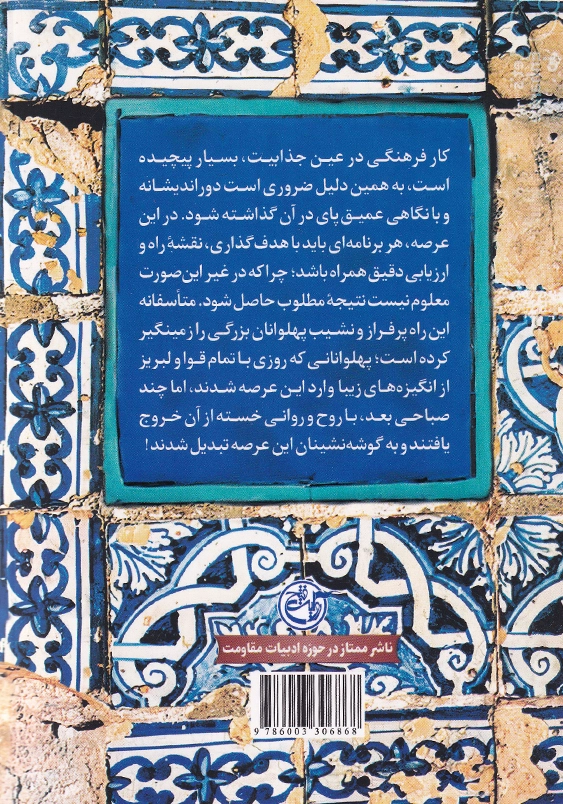 کار فرهنگی در عین جذابیت، بسیار پیچیده
است، به همین دلیل ضروری است دوراندیشانه
و با نگاهی عمیق پای در آن گذاشته شود. در این
عرصه، هر برنامه‌ای باید با هدف‌گذاری، نقشهٔ راه و
ارزیابی دقیق همراه باشد؛ چرا که در غیر این صورت
معلوم نیست نتیجهٔ مطلوب حاصل شود. متأسفانه
این راه پر فراز و نشیب پهلوانان بزرگی را زمینگیر
کرده است؛ پهلوانانی که روزی با تمام قوا و لبریز
از انگیزه‌های زیبا وارد این عرصه شدند، اما چند
صباحی بعد، با روح و روانی خسته از آن خروج
یافتند و به گوشه‌نشینان این عرصه تبدیل شدند!
ناشر ممتاز در حوزه ادبیات مقاومت
9 786003 306868